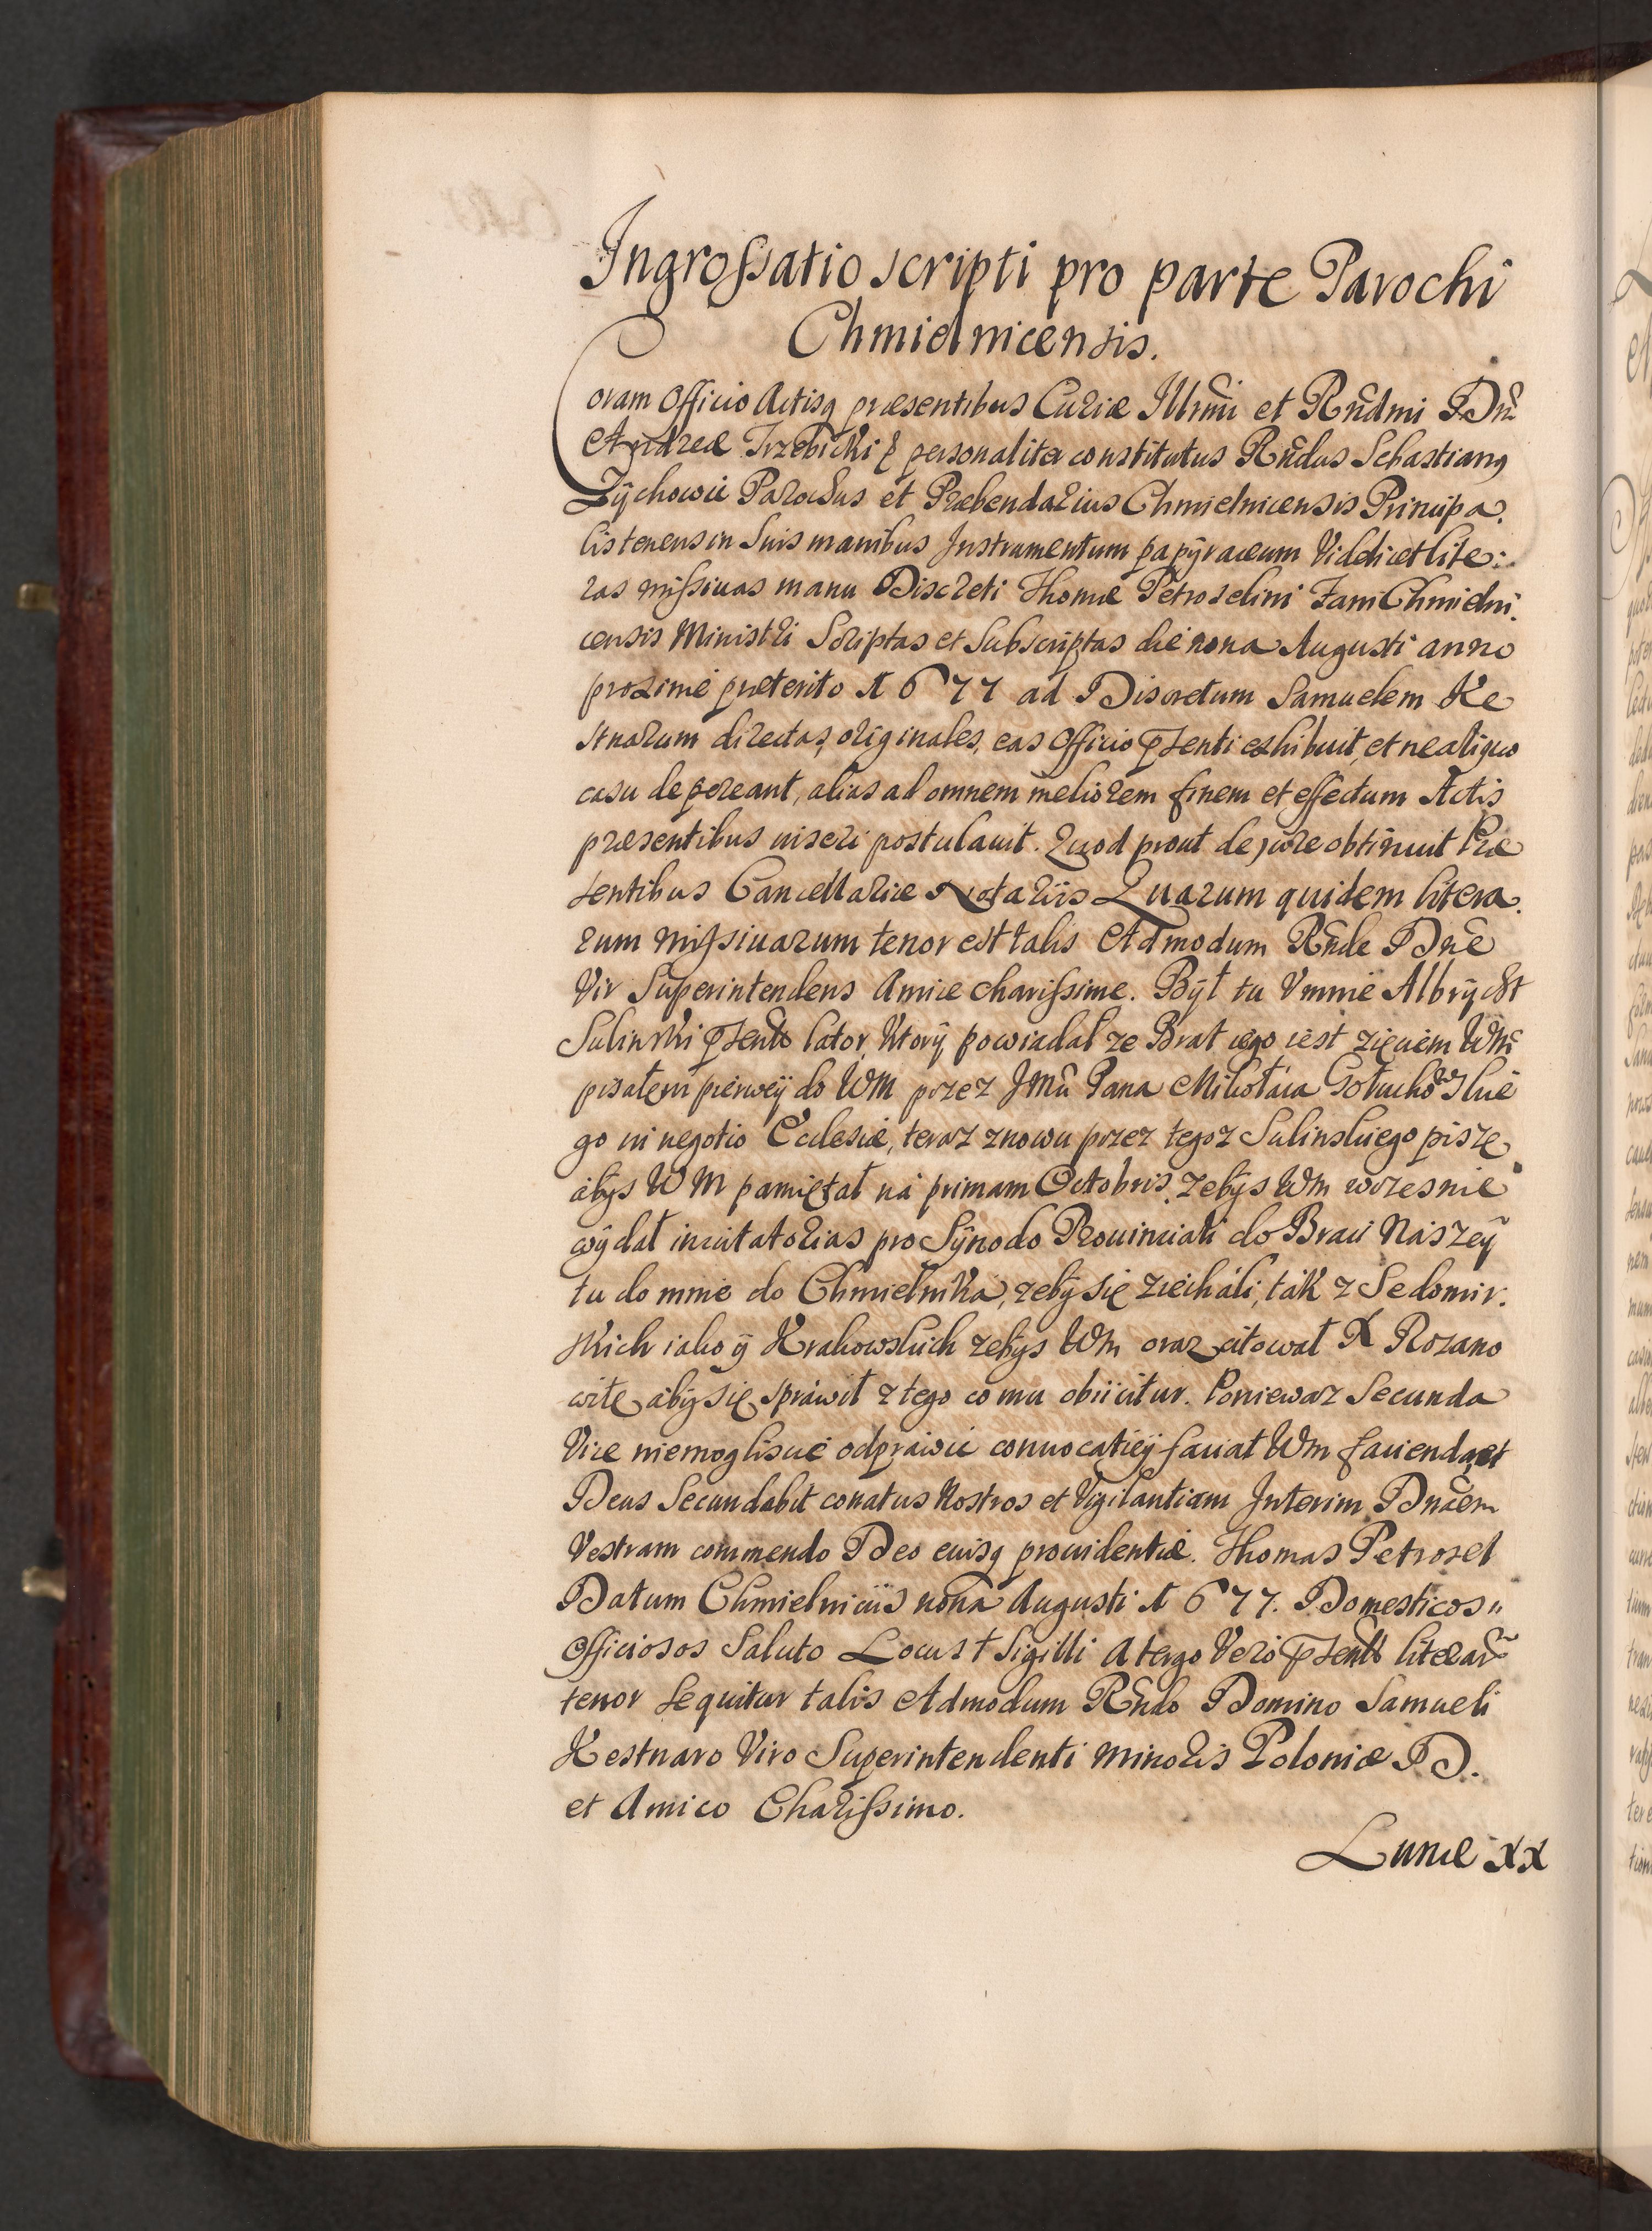 Ingrossatio scripti pro parte Parochi
Chmielnicensis.
Coram Officio Actisq præsentibus Curiæ Illrmi et Rndmi Dni
Andreæ Trzebicki & personaliter constitutus Rndus Sebastianq
Zÿchowic Parochus et Præbendarius Chmielnicensis Principa.
lis tenens in Suis manibus Instrumentum papÿraceum Videlicet lite:
ras missiuas manu Discreti Thomæ Petroselini Fani Chmielni.
censis Ministri Scriptas et Subscriptas die nona Augusti anno
proxime præterito 1677 ad Discretum Samuelem Ke
stnarum directas, originales, eas Officio pñsenti exhibuit, et ne aliquo
casu depereant, alias ad omnem meliorem finem et effectum Actis
præsentibus inseri postulauit. Quod prout de jure obtinuit Præ
sentibus Cancellariæ Notariis Quarum quidem litera.
rum missiuarum tenor est talis Admodum Rnde Dne
Vir Superintendens Amice charissime. Bÿł tu Vmnie Albrÿcht
Sulinski pñsentⁱ lator, Ktorÿ powiadał ze Brat iego iest zięciem WM
pisałem pierweÿ do WM przez JMu Pana Mikołaia Gołuchowskie
go in negotio Ecclesiæ, teraz znowu przez tegoz Sulinskiego pisze,
abÿs WM pamiętał na primam Octobris, zebÿs Wm wczesnie
wÿdał inuitatorias pro Sÿnodo Prouinciali do Braci Naszeÿ
tu do mnie do Chmielnika, zebÿ się ziechali, tak z Sedomir.
skich iako ÿ Krakowskich zebÿs Wm oraz citował X Rozano
wite, abÿ się sprawił z tego co mu obiicitur. Poniewasz Secunda
Vice niemoglismÿ odprawic conuocatieÿ faciat Wm facienda, et
Deus Secundabit conatus Nostros et Vigilantiam Interim Dnaem
Vestram commendo Deo eiusq prouidentiæ. Thomas Petrosel
Datum Chmielniciis nona Augusti 1677. Domesticos
Officiosos Saluto Locus † Sigilli A tergo Vero pñsentⁱ literarⁱ
tenor sequitur talis Admodum Rndo Domino Samueli
Kestnaro Viro Superintendenti Minoris Poloniæ D.
et Amico Charissimo.
Lunæ XX